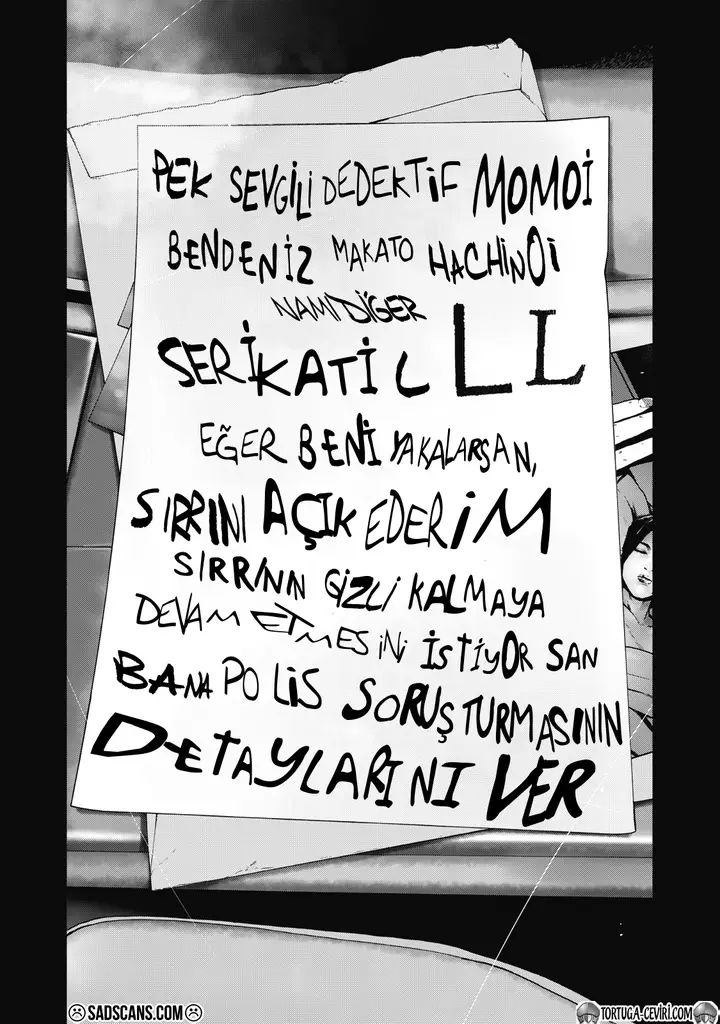 PEK SEVGİLİ DEDEKTİF MOMOİ
BENDENİZ MAKATO HACHİNOİ
NAMIDİĞER
SERİKATİL LL
EĞER BENİ YAKALARSAN,
SIRRINI AÇIK EDERİM
SIRRININ GİZLİ KALMAYA
DEVAM ETMESİNİ İSTİYOR SAN
BANA POLİS SORUŞTURMASININ
DETAYLARINI VER
SADSCANS.COM
TORTUGA-CEVİRİ.COM